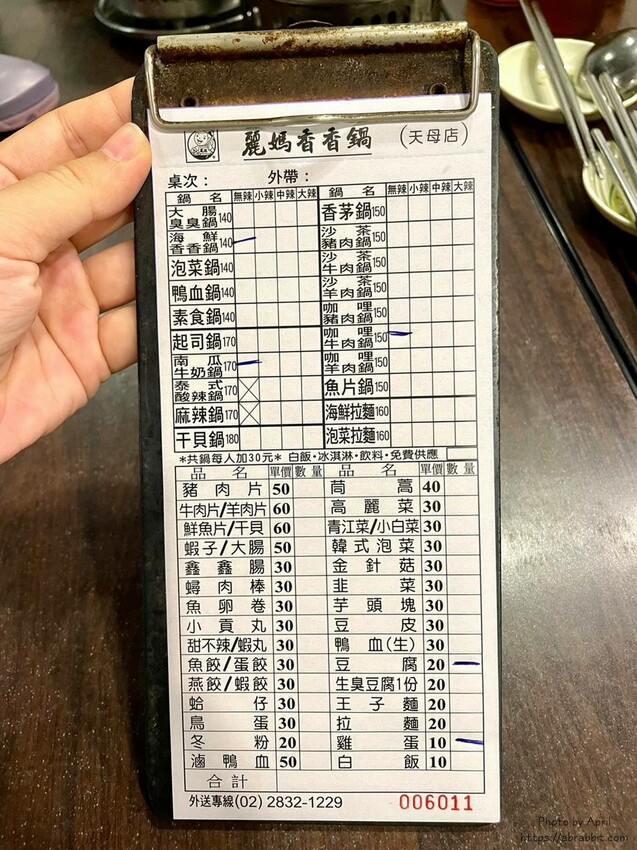 麗媽香香鍋 (天母店)
桌次： 外帶：
鍋名 無辣 小辣 中辣 大辣 鍋名 無辣 小辣 中辣 大辣
大腸臭臭鍋 140 香茅鍋 150
海鮮香香鍋 140 沙茶豬肉鍋 150
泡菜鍋 140 沙茶牛肉鍋 150
鴨血鍋 140 沙茶羊肉鍋 150
素食鍋 140 咖哩豬肉鍋 150
起司鍋 170 咖哩牛肉鍋 150
南瓜牛奶鍋 170 咖哩羊肉鍋 150
泰式酸辣鍋 170 魚片鍋 150
麻辣鍋 170 海鮮拉麵 160
干貝鍋 180 泡菜拉麵 160
*共鍋每人加30元* 白飯·冰淇淋·飲料·免費供應
品名 單價 數量 品名 單價 數量
豬肉片 50 茼蒿 40
牛肉片/羊肉片 60 高麗菜 30
鮮魚片/干貝 60 青江菜/小白菜 30
蝦子/大腸 50 韓式泡菜 30
鑫鑫腸 30 金針菇 30
蟳肉棒 30 韭菜 30
魚卵卷 30 芋頭塊 30
小貢丸 30 豆皮 30
甜不辣/蝦丸 30 鴨血(生) 30
魚餃/蛋餃 30 豆腐 20
燕餃/蝦餃 30 生臭豆腐1份 20
蛤仔 30 王子麵 20
鳥蛋 30 拉麵 20
冬粉 20 雞蛋 10
滷鴨血 50 白飯 10
合計
外送專線(02) 2832-1229 006011
Photo by April
https://abrabbit.com